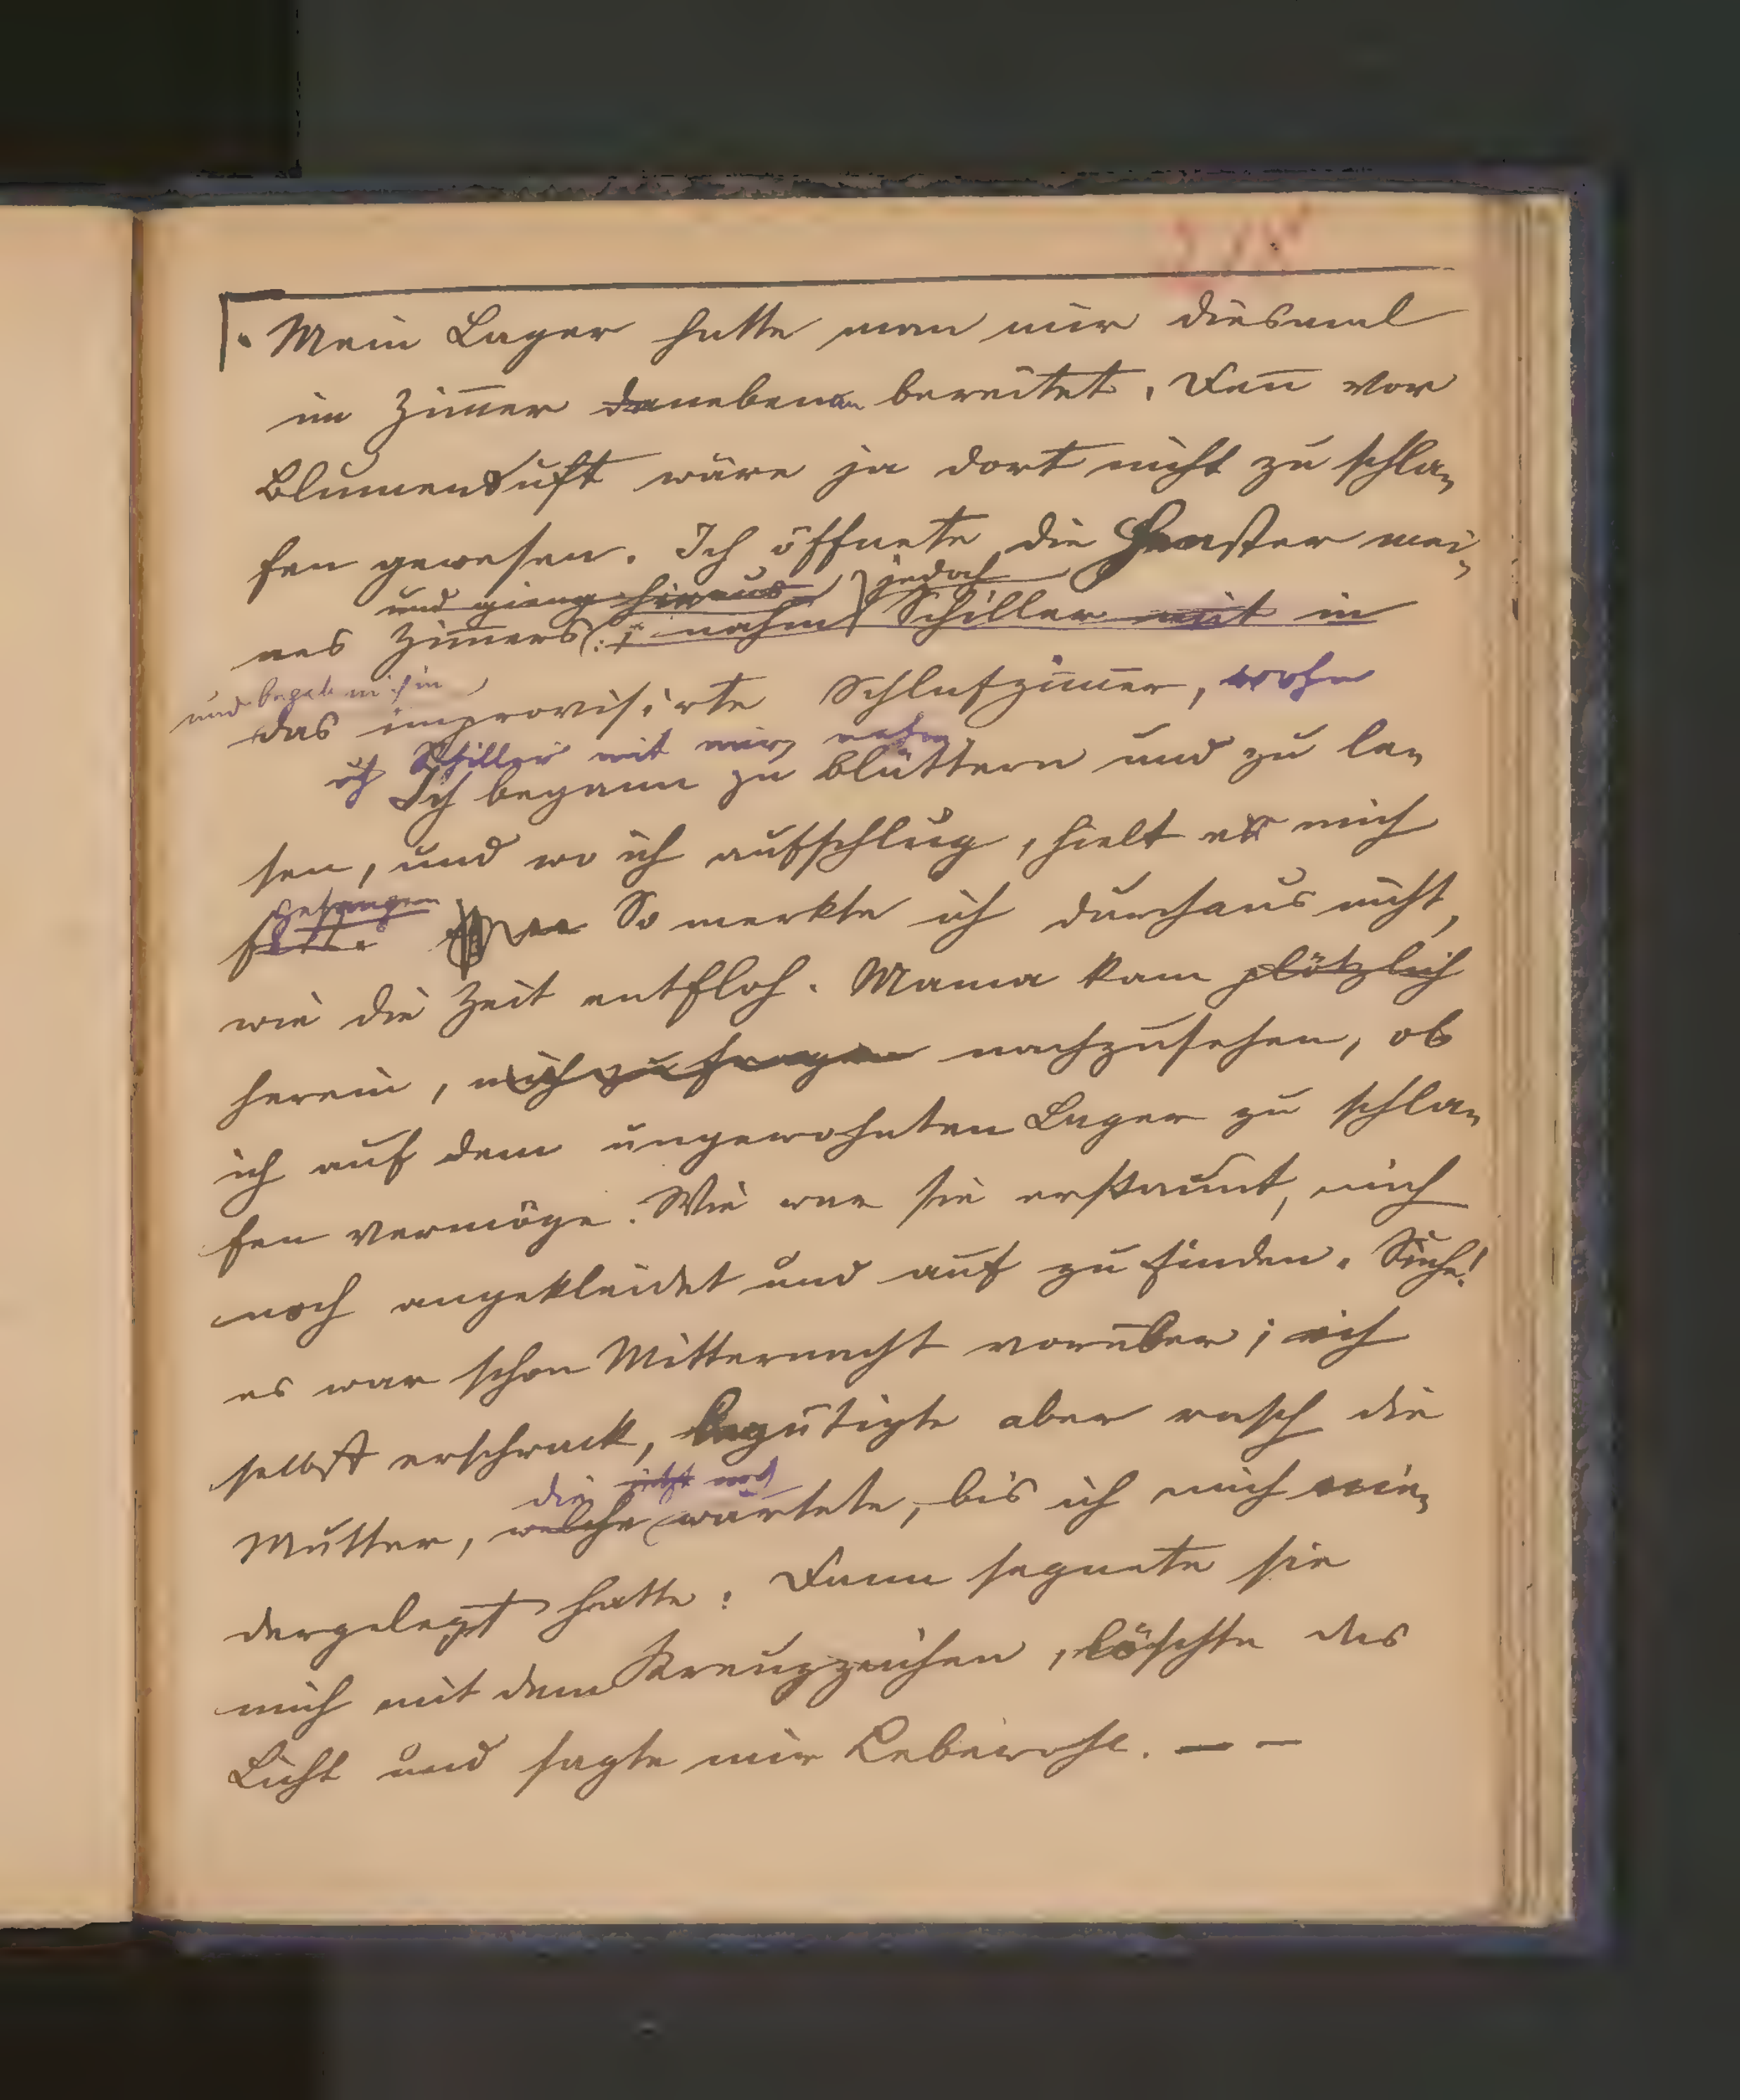 Mein Lager hatte man mir diesmal
im Zim̄er danebenan bereitet. Den̄ vor
Blumenduft wäre ja dort nicht zu schla-
fen gewesen. Ich öffnete die Fenster mei-
und gieng hinaus jedoch
nes Zim̄ers; nahm Schiller mit in
und begab mich in
das improvisirte Schlafzim̄er, wohin
ich Schiller mit mir nahm
Ich begann zu blättern und zu le-
sen, und wo ich aufschlug, hielt er mich
gefangen
fest. So merkte ich durchaus nicht,
wie die Zeit entfloh. Mama kam plötzlich
herein, mich zu fragen nachzusehen, ob
ich auf dem ungewohnten Lager zu schla-
fen vermöge. Wie war sie erstaunt, mich
noch angekleidet und auf zu finden. Siehe!
es war schon Mitternacht vorüber; ich
selbst erschrack, begütigte aber rasch die
die jetzt noch
Mutter, welche wartete, bis ich mich nie-
dergelegt hatte. Dann segnete sie
mich mit dem Kreuzzeichen, löschte das
Licht und sagte mir Lebewohl. — —